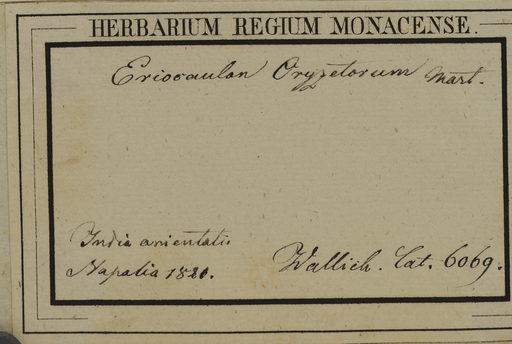 HERBARIUM REGIUM MONACENSE.
Eriocaulon Oryzetorum Mart.
India orientalis
Napalia 1820.
Wallich. Cat. 6069.